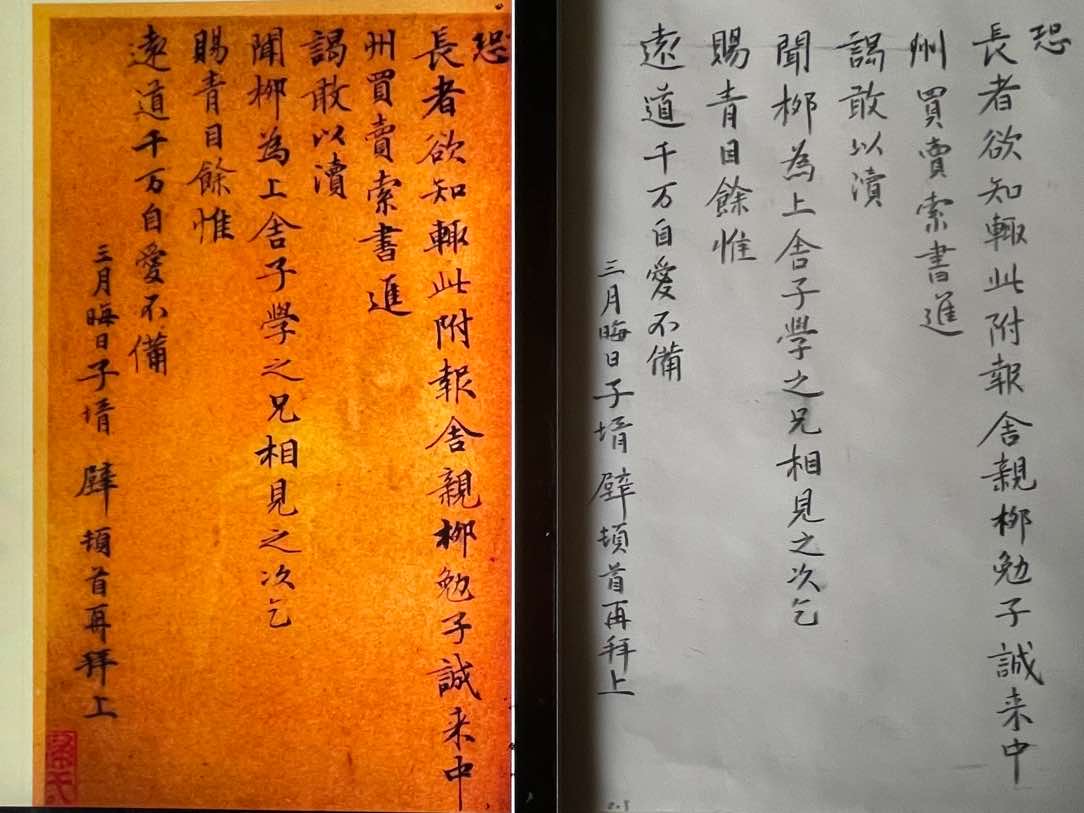 恐
長者欲知輙此附報舎親栁勉子誠来中
州買賣索書進
謁敢以瀆
聞栁為上舎子學之兄相見之次乞
賜青目餘惟
遠道千万自愛不備
三月晦日子壻 壁 頓首再拜上
恐
長者欲知輙此附報舎親栁勉子誠来中
州買賣索書進
謁敢以瀆
聞栁為上舎子學之兄相見之次乞
賜青目餘惟
遠道千万自愛不備
三月晦日子壻 壁 頓首再拜上